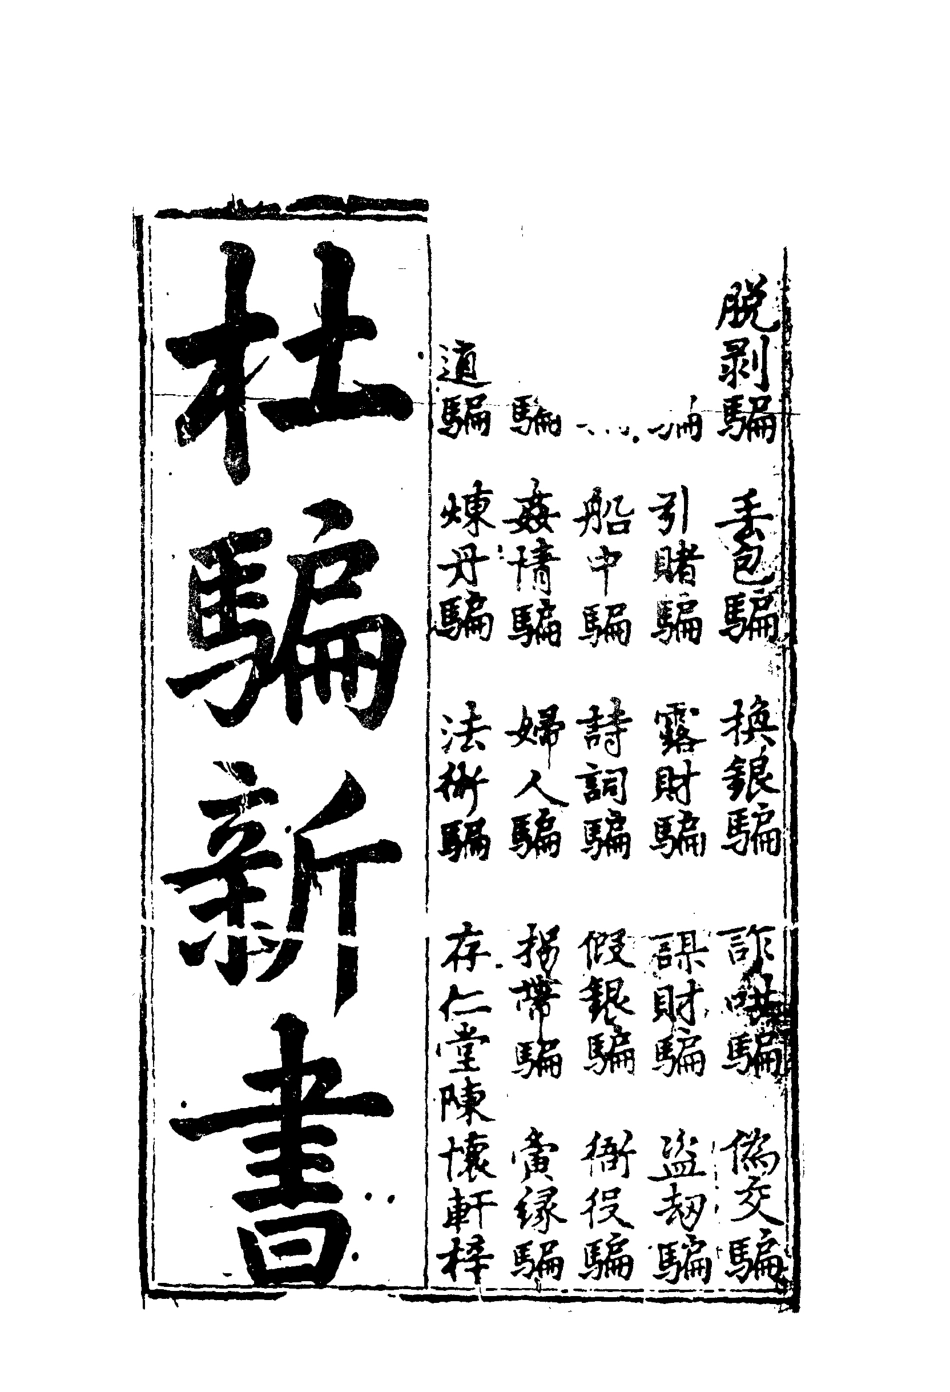 脱剥騙 丢包騙 換銀騙 詐哄騙 僞交騙
騙 引賭騙 露財騙 謀財騙 盗刼騙
船中騙 詩詞騙 假銀騙 衙役騙
騙 姦情騙 婦人騙 拐帶騙 夤縁騙
道騙 煉丹騙 法術騙 存仁堂陳懐軒梓
杜騙新書